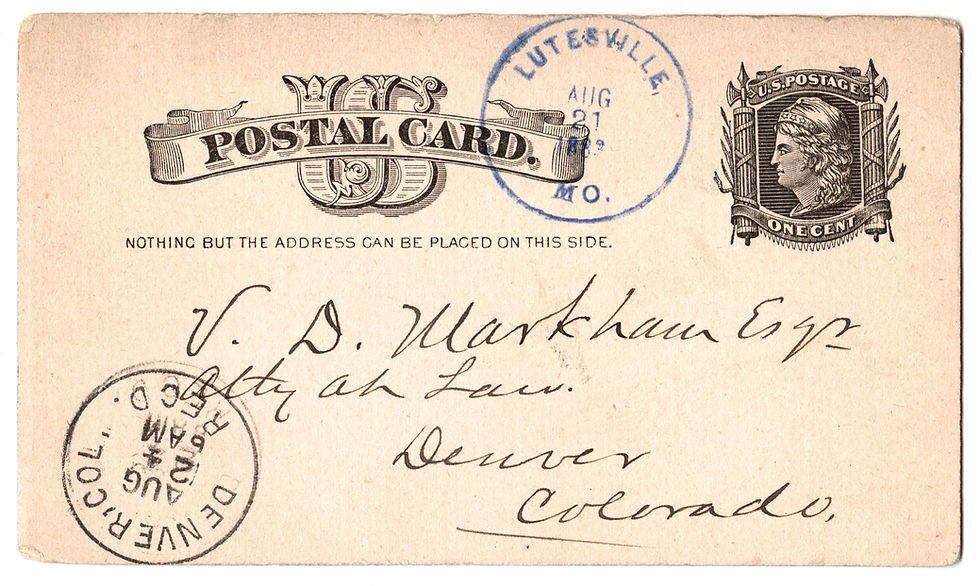 US
POSTAL CARD.
NOTHING BUT THE ADDRESS CAN BE PLACED ON THIS SIDE.
LUTESVILLE,
AUG
21
MO.
U.S. POSTAGE
ONE CENT
V. D. Markham Esqr
Atty at Law.
Denver
Colorado.
DENVER, COL.
AUG
24
AM
REC'D.